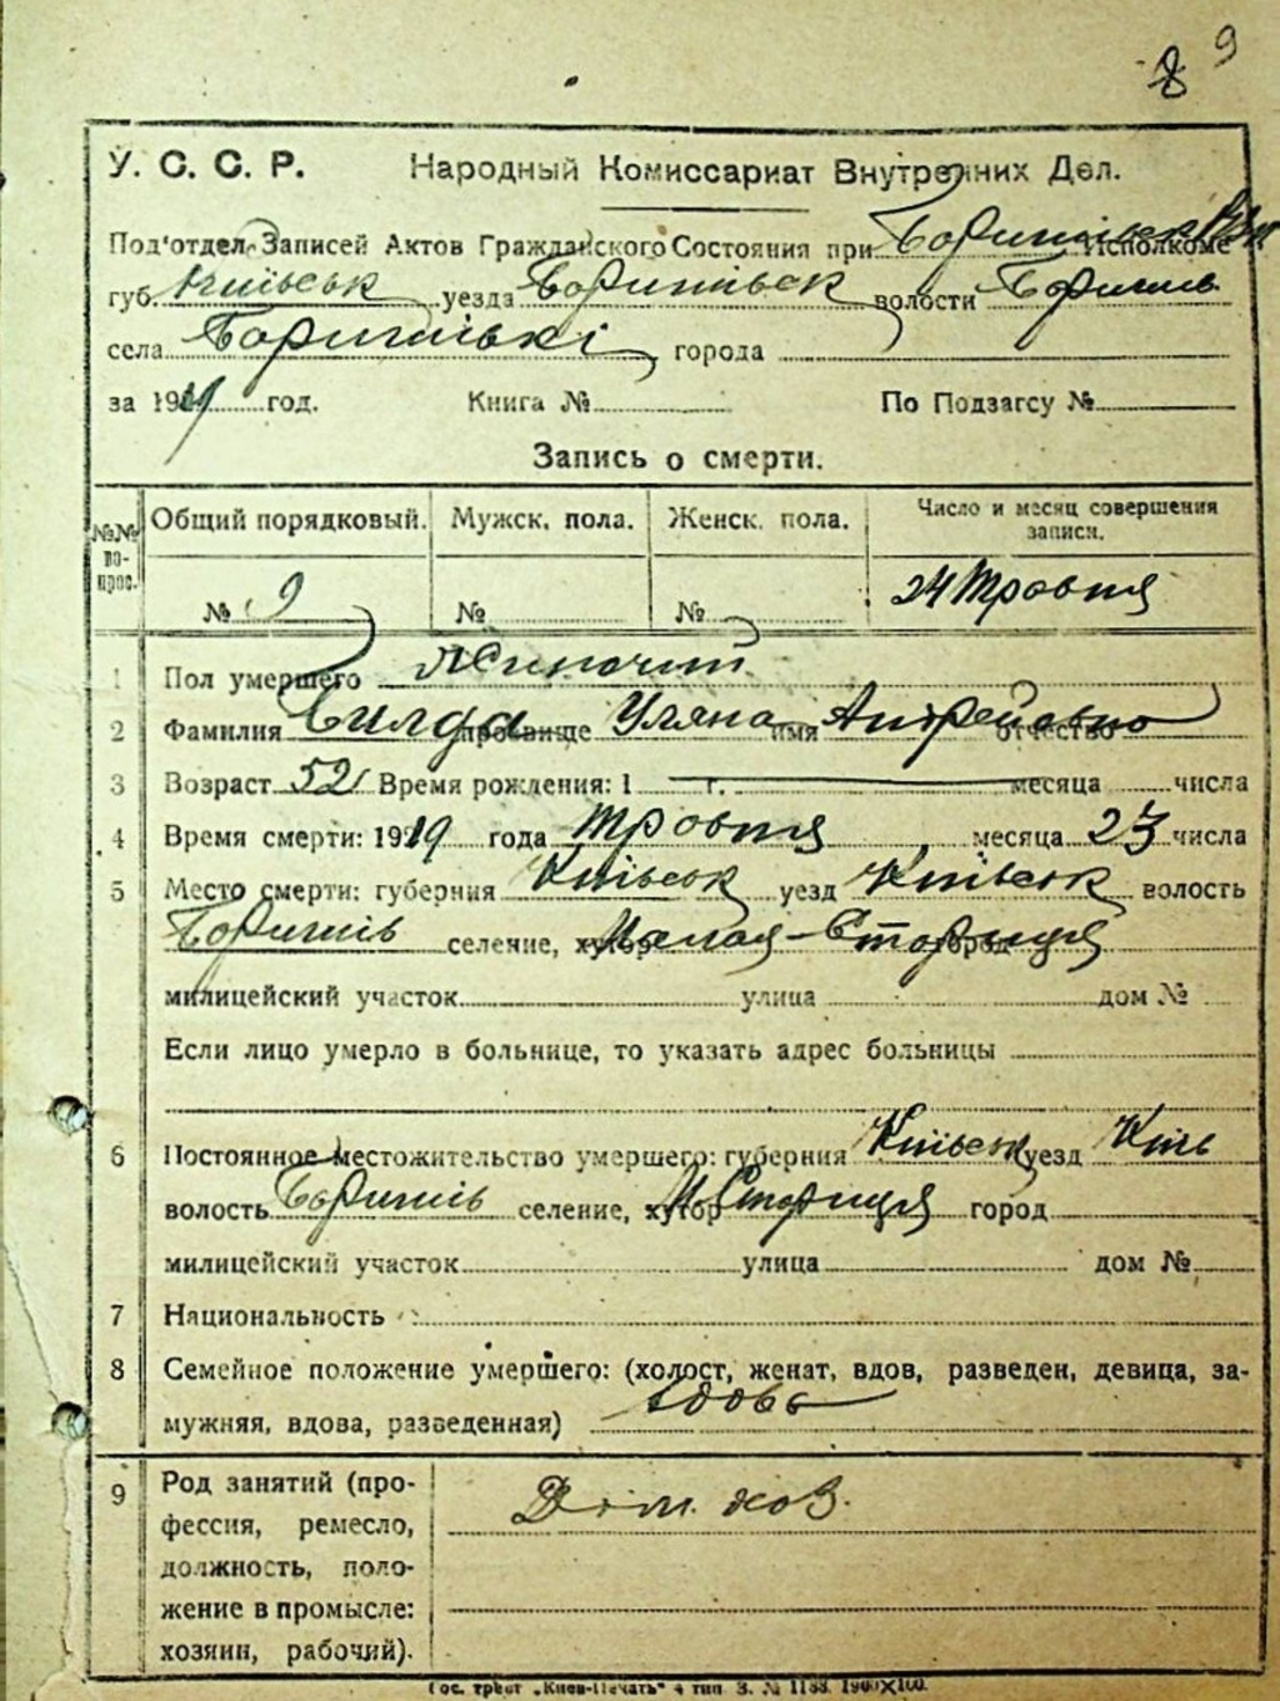 8 9
У. С. С. Р. Народный Комиссариат Внутренних Дел.
Под'отдел Записей Актов Гражданского Состояния при Исполкоме
губ. Київськ уезда волости
села города
за 1919 год. Книга № По Подзагсу №
Запись о смерти.
№№ во- прос. Общий порядковый. Мужск. пола. Женск. пола. Число и месяц совершения записи.
№ 9 № № 24 Травня
1 Пол умершего Жиночий
2 Фамилия прозвище Уляна имя Андреївно отчество
3 Возраст 52 Время рождения: 1 г. месяца числа
4 Время смерти: 1919 года Травня месяца 23 числа
5 Место смерти: губерния Київськ уезд Київськ волость
селение, хутор Малая-Сториця город
милицейский участок улица дом №
Если лицо умерло в больнице, то указать адрес больницы
6 Постоянное местожительство умершего: губерния Київськ уезд Київ
волость селение, хутор М Сториця город
милицейский участок улица дом №
7 Национальность
8 Семейное положение умершего: (холост, женат, вдов, разведен, девица, за-
мужняя, вдова, разведенная) вдова
9 Род занятий (про- Дом. хов.
фессия, ремесло,
должность, поло-
жение в промысле:
хозяин, рабочий).
Гос. трест „Киев-Печать" 4 тип. З. № 1188. 1900×100.